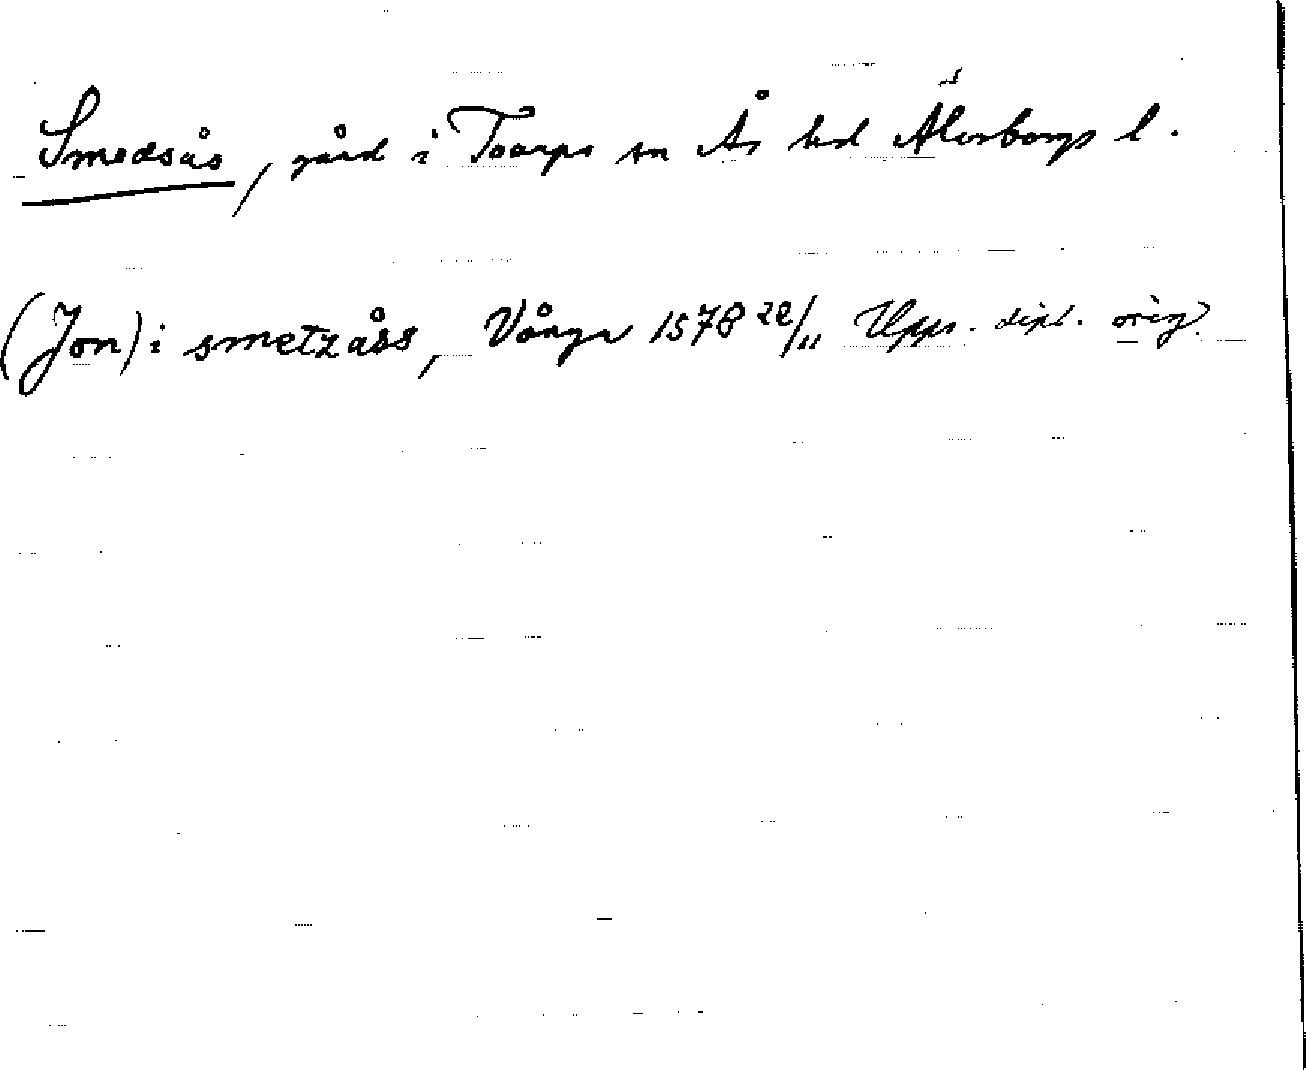 Smedsås, gård i Toarps sn Ås hd Älvsborgs l.
(Jon) i smetzåss, Vånga 1578 22/11 Upps. dipl. orig.